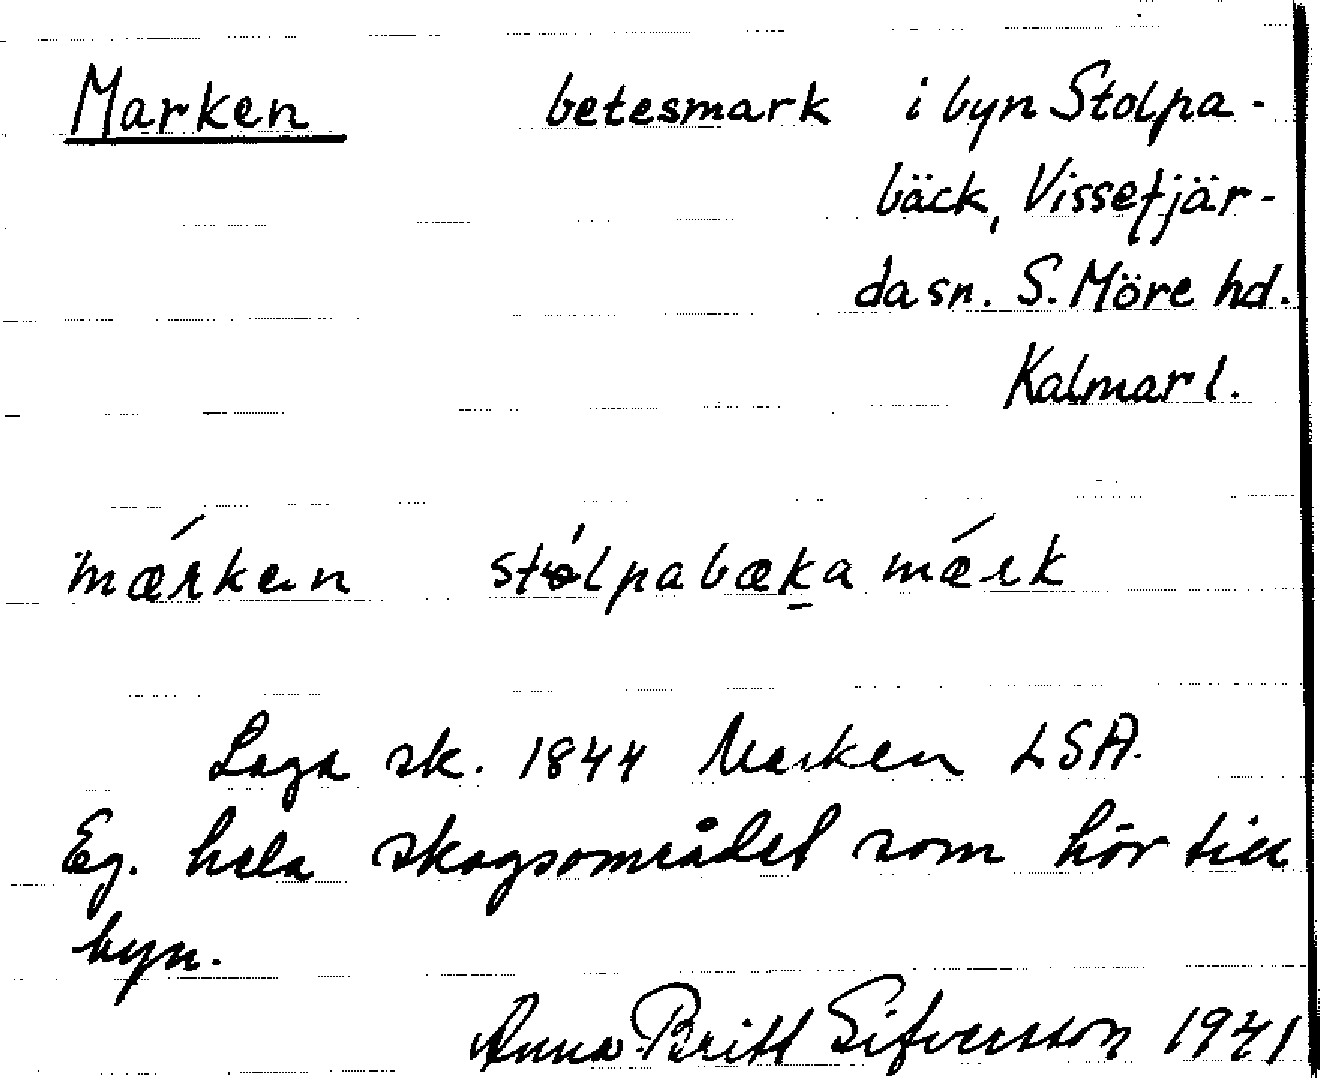 Marken betesmark i byn Stolpa-
bäck, Vissefjär-
da sn. S. Möre hd.
Kalmar l.
mǽrkæn stólpabæḵa mǽrk
Laga sk. 1844 Marken LSA.
Eg. hela skogsområdet som hör till
byn.
Anna Britt Sifversson 1941